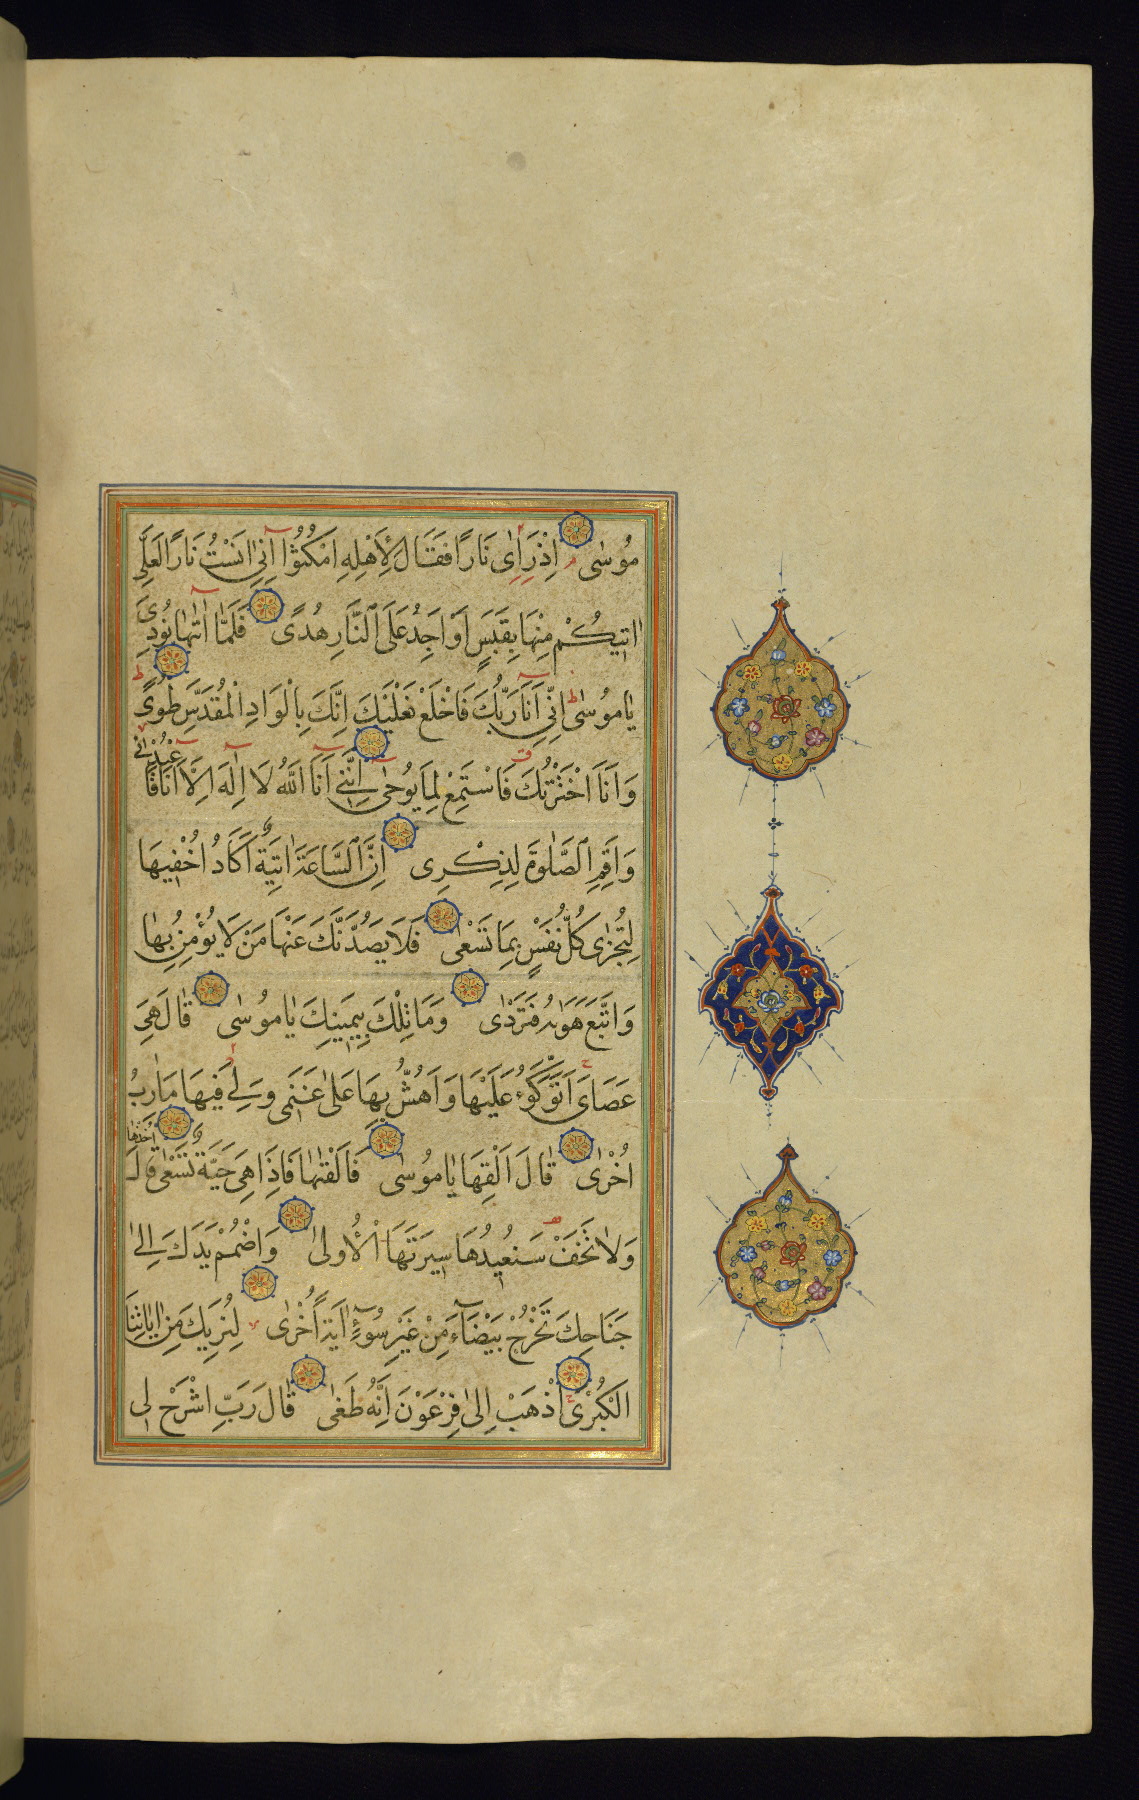 مُوسٰى اِذْ رَاٰى نَارًا فَقَالَ لِاَهْلِهِ امْكُثُوٓا اِنِّىٓ اٰنَسْتُ نَارًا لَعَلِّىٓ
اٰتِيكُمْ مِنْهَا بِقَبَسٍ اَوْ اَجِدُ عَلَى النَّارِ هُدًى فَلَمَّآ اَتٰىهَا نُودِىَ
يَا مُوسٰىٓ اِنِّىٓ اَنَا رَبُّكَ فَاخْلَعْ نَعْلَيْكَ اِنَّكَ بِالْوَادِ الْمُقَدَّسِ طُوًى
وَاَنَا اخْتَرْتُكَ فَاسْتَمِعْ لِمَا يُوحٰى اِنَّنِىٓ اَنَا اللّٰهُ لَآ اِلٰهَ اِلَّآ اَنَا فَاعْبُدْنِى
وَاَقِمِ الصَّلٰوةَ لِذِكْرِى اِنَّ السَّاعَةَ اٰتِيَةٌ اَكَادُ اُخْفِيهَا
لِتُجْزٰى كُلُّ نَفْسٍ بِمَا تَسْعٰى فَلَا يَصُدَّنَّكَ عَنْهَا مَنْ لَا يُؤْمِنُ بِهَا
وَاتَّبَعَ هَوٰىهُ فَتَرْدٰى وَمَا تِلْكَ بِيَمِينِكَ يَا مُوسٰى قَالَ هِىَ
عَصَاىَ اَتَوَكَّؤُ عَلَيْهَا وَاَهُشُّ بِهَا عَلٰى غَنَمِى وَلِىَ فِيهَا مَاٰرِبُ
اُخْرٰى قَالَ اَلْقِهَا يَا مُوسٰى فَاَلْقٰىهَا فَاِذَا هِىَ حَيَّةٌ تَسْعٰى قَالَ خُذْهَا
وَلَا تَخَفْ سَنُعِيدُهَا سِيرَتَهَا الْاُولٰى وَاضْمُمْ يَدَكَ اِلٰى
جَنَاحِكَ تَخْرُجْ بَيْضَآءَ مِنْ غَيْرِ سُوٓءٍ اٰيَةً اُخْرٰى لِنُرِيَكَ مِنْ اٰيَاتِنَا
الْكُبْرٰى اِذْهَبْ اِلٰى فِرْعَوْنَ اِنَّهُ طَغٰى قَالَ رَبِّ اشْرَحْ لِى